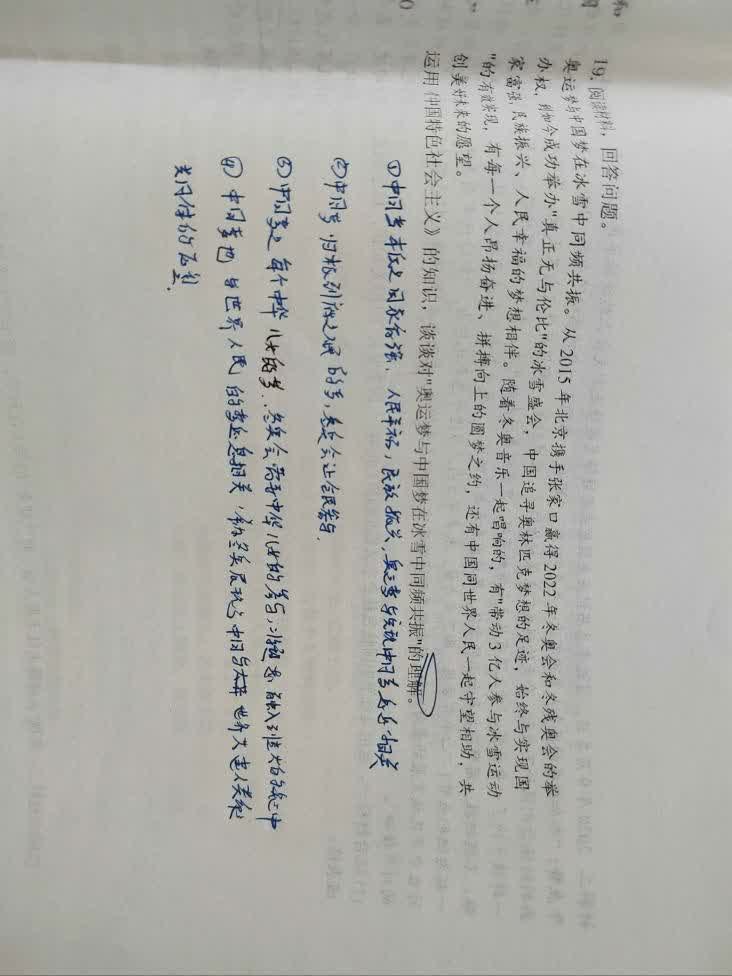 19. 阅读材料，回答问题。
奥运梦与中国梦在冰雪中同频共振。从 2015 年北京携手张家口赢得 2022 年冬奥会和冬残奥会的举
办权，到如今成功举办"真正无与伦比"的冰雪盛会，中国追寻奥林匹克梦想的足迹，始终与实现国
家富强、民族振兴、人民幸福的梦想相伴。随着冬奥音乐一起唱响的，有"带动 3 亿人参与冰雪运动
"的有效实现，有每一个人昂扬奋进、拼搏向上的圆梦之约，还有中国同世界人民一起守望相助，共
创美好未来的愿望。
运用《中国特色社会主义》的知识，谈谈对"奥运梦与中国梦在冰雪中同频共振"的理解。
①中国梦本质是国家富强、人民幸福，民族振兴，奥运梦与实现中国梦息息相关
②中国梦归根到底是人民的梦，奥运会让全民参与.
③中国梦是每个中华儿女的梦.冬奥会需要中华儿女的参与，融入到
④中国梦也与世界人民的梦息息相关，冬奥展现了中国与世界人
共同体的